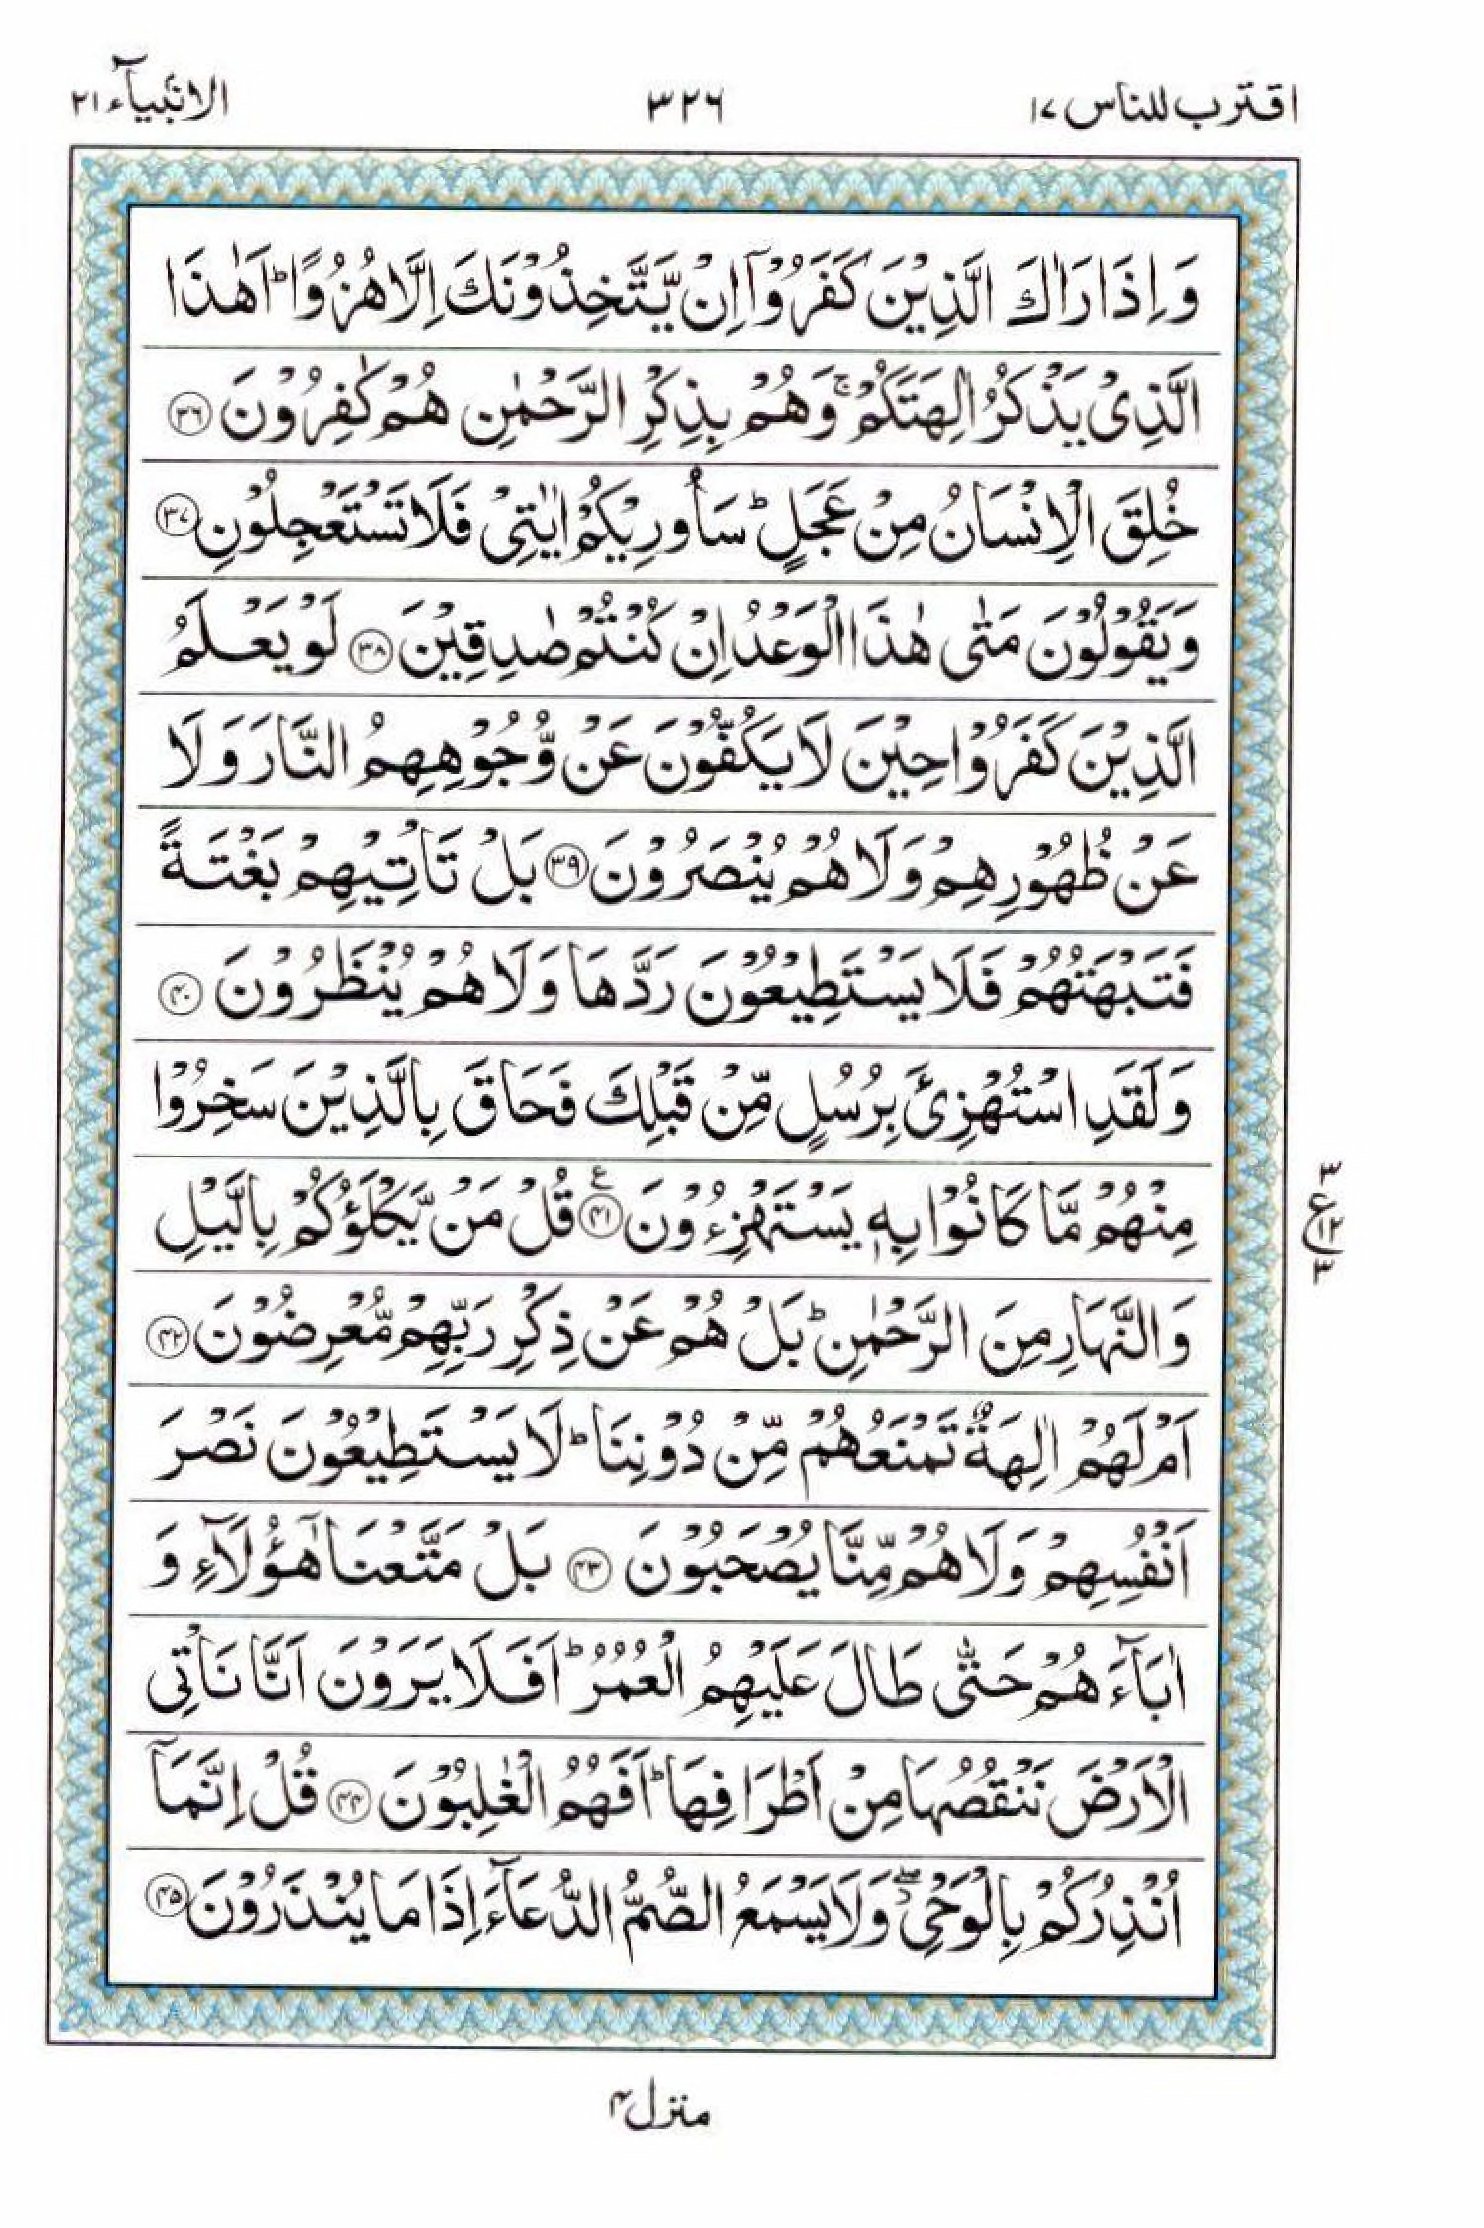 اقترب للناس ١٧ ٣٢٦ الانبيآء ٢١
وَاِذَا رَاٰكَ الَّذِيْنَ كَفَرُوْۤا اِنْ يَّتَّخِذُوْنَكَ اِلَّا هُزُوًا ؕ اَهٰذَا
الَّذِىْ يَذْكُرُ اٰلِهَتَكُمْ ۚ وَهُمْ بِذِكْرِ الرَّحْمٰنِ هُمْ كٰفِرُوْنَ ﴿۳۶﴾
خُلِقَ الْاِنْسَانُ مِنْ عَجَلٍ ؕ سَاُورِيْكُمْ اٰيٰتِىْ فَلَا تَسْتَعْجِلُوْنِ ﴿۳۷﴾
وَيَقُوْلُوْنَ مَتٰى هٰذَا الْوَعْدُ اِنْ كُنْتُمْ صٰدِقِيْنَ ﴿۳۸﴾ لَوْ يَعْلَمُ
الَّذِيْنَ كَفَرُوْا حِيْنَ لَا يَكُفُّوْنَ عَنْ وُّجُوْهِهِمُ النَّارَ وَلَا
عَنْ ظُهُوْرِهِمْ وَلَا هُمْ يُنْصَرُوْنَ ﴿۳۹﴾ بَلْ تَاْتِيْهِمْ بَغْتَةً
فَتَبْهَتُهُمْ فَلَا يَسْتَطِيْعُوْنَ رَدَّهَا وَلَا هُمْ يُنْظَرُوْنَ ﴿۴۰﴾
وَلَقَدِ اسْتُهْزِئَ بِرُسُلٍ مِّنْ قَبْلِكَ فَحَاقَ بِالَّذِيْنَ سَخِرُوْا
مِنْهُمْ مَّا كَانُوْا بِهٖ يَسْتَهْزِءُوْنَ ﴿۴۱﴾ ع قُلْ مَنْ يَّكْلَؤُكُمْ بِالَّيْلِ
٣ ع ١٢ ٣
وَالنَّهَارِ مِنَ الرَّحْمٰنِ ؕ بَلْ هُمْ عَنْ ذِكْرِ رَبِّهِمْ مُّعْرِضُوْنَ ﴿۴۲﴾
اَمْ لَهُمْ اٰلِهَةٌ تَمْنَعُهُمْ مِّنْ دُوْنِنَا ؕ لَا يَسْتَطِيْعُوْنَ نَصْرَ
اَنْفُسِهِمْ وَلَا هُمْ مِّنَّا يُصْحَبُوْنَ ﴿۴۳﴾ بَلْ مَتَّعْنَا هٰۤؤُلَآءِ وَ
اٰبَآءَهُمْ حَتّٰى طَالَ عَلَيْهِمُ الْعُمُرُ ؕ اَفَلَا يَرَوْنَ اَنَّا نَاْتِى
الْاَرْضَ نَنْقُصُهَا مِنْ اَطْرَافِهَا ؕ اَفَهُمُ الْغٰلِبُوْنَ ﴿۴۴﴾ قُلْ اِنَّمَاۤ
اُنْذِرُكُمْ بِالْوَحْىِ ۖ وَلَا يَسْمَعُ الصُّمُّ الدُّعَآءَ اِذَا مَا يُنْذَرُوْنَ ﴿۴۵﴾
منزل ۴